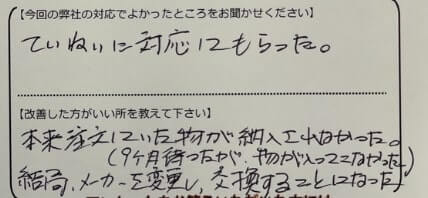 【今回の弊社の対応でよかったところをお聞かせください】
ていねいに対応してもらった。
【改善した方がいい所を教えて下さい】
本来注文していた物が納入されなかった。
(9ヶ月待ったが、物が入ってこなかった)
結局、メーカーを変更し、交換することになった。